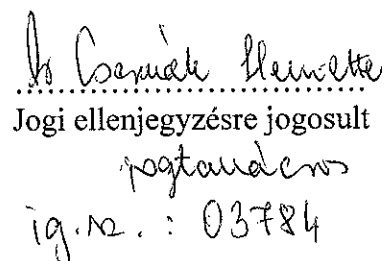 Dr Csernák Henriette
Jogi ellenjegyzésre jogosult
jogtanácsos
ig.sz.: 03784